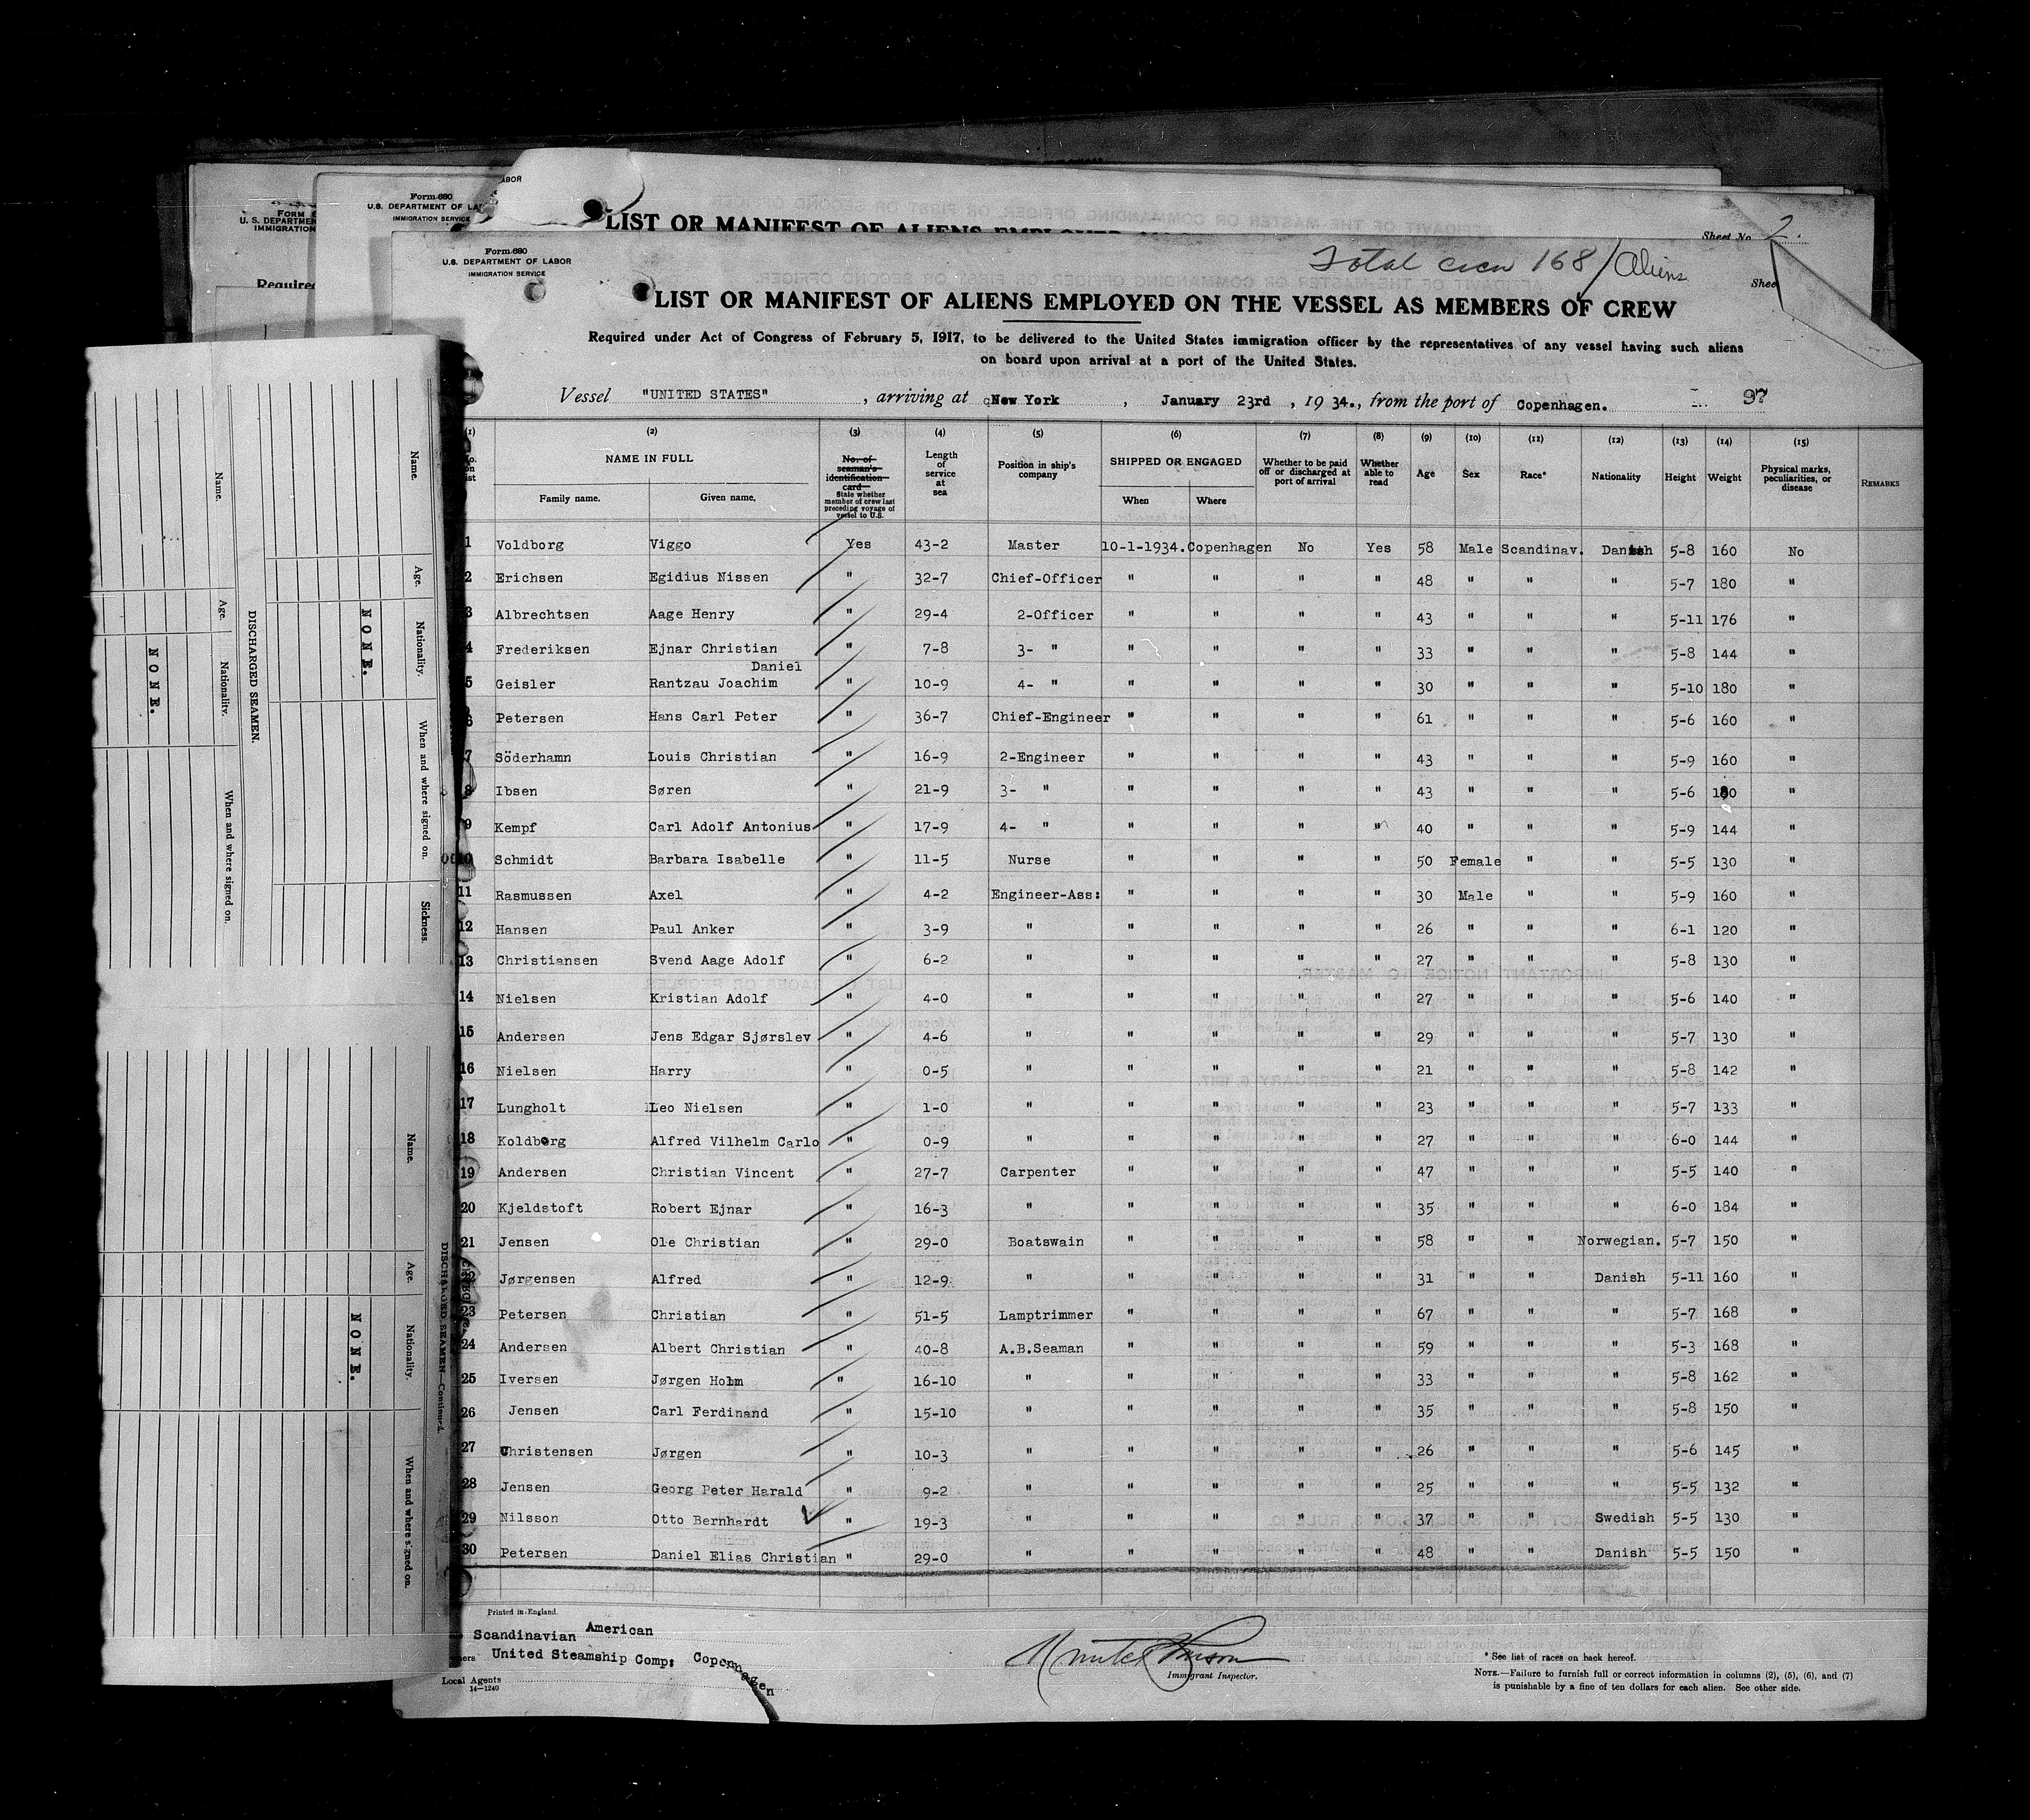 ABOR
Form 680
U.S. DEPARTMENT OF
IMMIGRATION SERVICE
U. S. DEPARTMENT
IMMIGRATION
Required
LIST OR MANIFEST OF ALIENS EMPLOYED
Sheet No. 2.
Form 680
U.S. DEPARTMENT OF LABOR
IMMIGRATION SERVICE
Total crew 168/Aliens
Shee
LIST OR MANIFEST OF ALIENS EMPLOYED ON THE VESSEL AS MEMBERS OF CREW
Required under Act of Congress of February 5, 1917, to be delivered to the United States immigration officer by the representatives of any vessel having such aliens
on board upon arrival at a port of the United States.
Vessel "UNITED STATES", arriving at New York, January 23rd, 1934., from the port of Copenhagen. 37
(1) (2) (3) (4) (5) (6) (7) (8) (9) (10) (11) (12) (13) (14) (15)
NAME IN FULL
Family name. Given name.
No. of seaman's identification card State whether member of crew last preceding voyage of vessel to U.S.
Length of service at sea
Position in ship's company
SHIPPED OR ENGAGED
When Where
Whether to be paid off or discharged at port of arrival
Whether able to read
Age Sex Race* Nationality Height Weight
Physical marks, peculiarities, or disease
REMARKS
1 Voldborg Viggo Yes 43-2 Master 10-1-1934. Copenhagen No Yes 58 Male Scandinav. Danish 5-8 160 No
2 Erichsen Egidius Nissen " 32-7 Chief-Officer " " " " 48 " " " 5-7 180 "
3 Albrechtsen Aage Henry " 29-4 2-Officer " " " " 43 " " " 5-11 176 "
4 Frederiksen Ejnar Christian " 7-8 3- " " " " " 33 " " " 5-8 144 "
Daniel
5 Geisler Rantzau Joachim " 10-9 4- " " " " " 30 " " " 5-10 180 "
6 Petersen Hans Carl Peter " 36-7 Chief-Engineer " " " " 61 " " " 5-6 160 "
7 Söderhamn Louis Christian " 16-9 2-Engineer " " " " 43 " " " 5-9 160 "
8 Ibsen Søren " 21-9 3- " " " " " 43 " " " 5-6 180 "
9 Kempf Carl Adolf Antonius " 17-9 4- " " " " " 40 " " " 5-9 144 "
10 Schmidt Barbara Isabelle " 11-5 Nurse " " " " 50 Female " " 5-5 130 "
11 Rasmussen Axel " 4-2 Engineer-Ass: " " " " 30 Male " " 5-9 160 "
12 Hansen Paul Anker " 3-9 " " " " " 26 " " " 6-1 120 "
13 Christiansen Svend Aage Adolf " 6-2 " " " " " 27 " " " 5-8 130 "
14 Nielsen Kristian Adolf " 4-0 " " " " " 27 " " " 5-6 140 "
15 Andersen Jens Edgar Sjørslev " 4-6 " " " " " 29 " " " 5-7 130 "
16 Nielsen Harry " 0-5 " " " " " 21 " " " 5-8 142 "
17 Lungholt Leo Nielsen " 1-0 " " " " " 23 " " " 5-7 133 "
18 Koldborg Alfred Vilhelm Carlo " 0-9 " " " " " 27 " " " 6-0 144 "
19 Andersen Christian Vincent " 27-7 Carpenter " " " " 47 " " " 5-5 140 "
20 Kjeldstoft Robert Ejnar " 16-3 " " " " " 35 " " " 6-0 184 "
21 Jensen Ole Christian " 29-0 Boatswain " " " " 58 " " Norwegian. 5-7 150 "
22 Jørgensen Alfred " 12-9 " " " " " 31 " " Danish 5-11 160 "
23 Petersen Christian " 51-5 Lamptrimmer " " " " 67 " " " 5-7 168 "
24 Andersen Albert Christian " 40-8 A.B.Seaman " " " " 59 " " " 5-3 168 "
25 Iversen Jørgen Holm " 16-10 " " " " " 33 " " " 5-8 162 "
26 Jensen Carl Ferdinand " 15-10 " " " " " 35 " " " 5-8 150 "
27 Christensen Jørgen " 10-3 " " " " " 26 " " " 5-6 145 "
28 Jensen Georg Peter Harald " 9-2 " " " " " 25 " " " 5-5 132 "
29 Nilsson Otto Bernhardt " 19-3 " " " " " 37 " " Swedish 5-5 130 "
30 Petersen Daniel Elias Christian " 29-0 " " " " " 48 " " Danish 5-5 150 "
Printed in England.
Scandinavian American
United Steamship Comp: Copenhagen
Local Agents
14—1240
Immigrant Inspector.
* See list of races on back hereof.
NOTE.—Failure to furnish full or correct information in columns (2), (5), (6), and (7)
is punishable by a fine of ten dollars for each alien. See other side.
Name. Age. Nationality. When and where signed on.
NONE.
DISCHARGED SEAMEN.
Name. Age. Nationality. When and where signed on. Sickness.
NONE.
DISCHARGED SEAMEN—Continued.
Name. Age. Nationality. When and where signed on.
NONE.